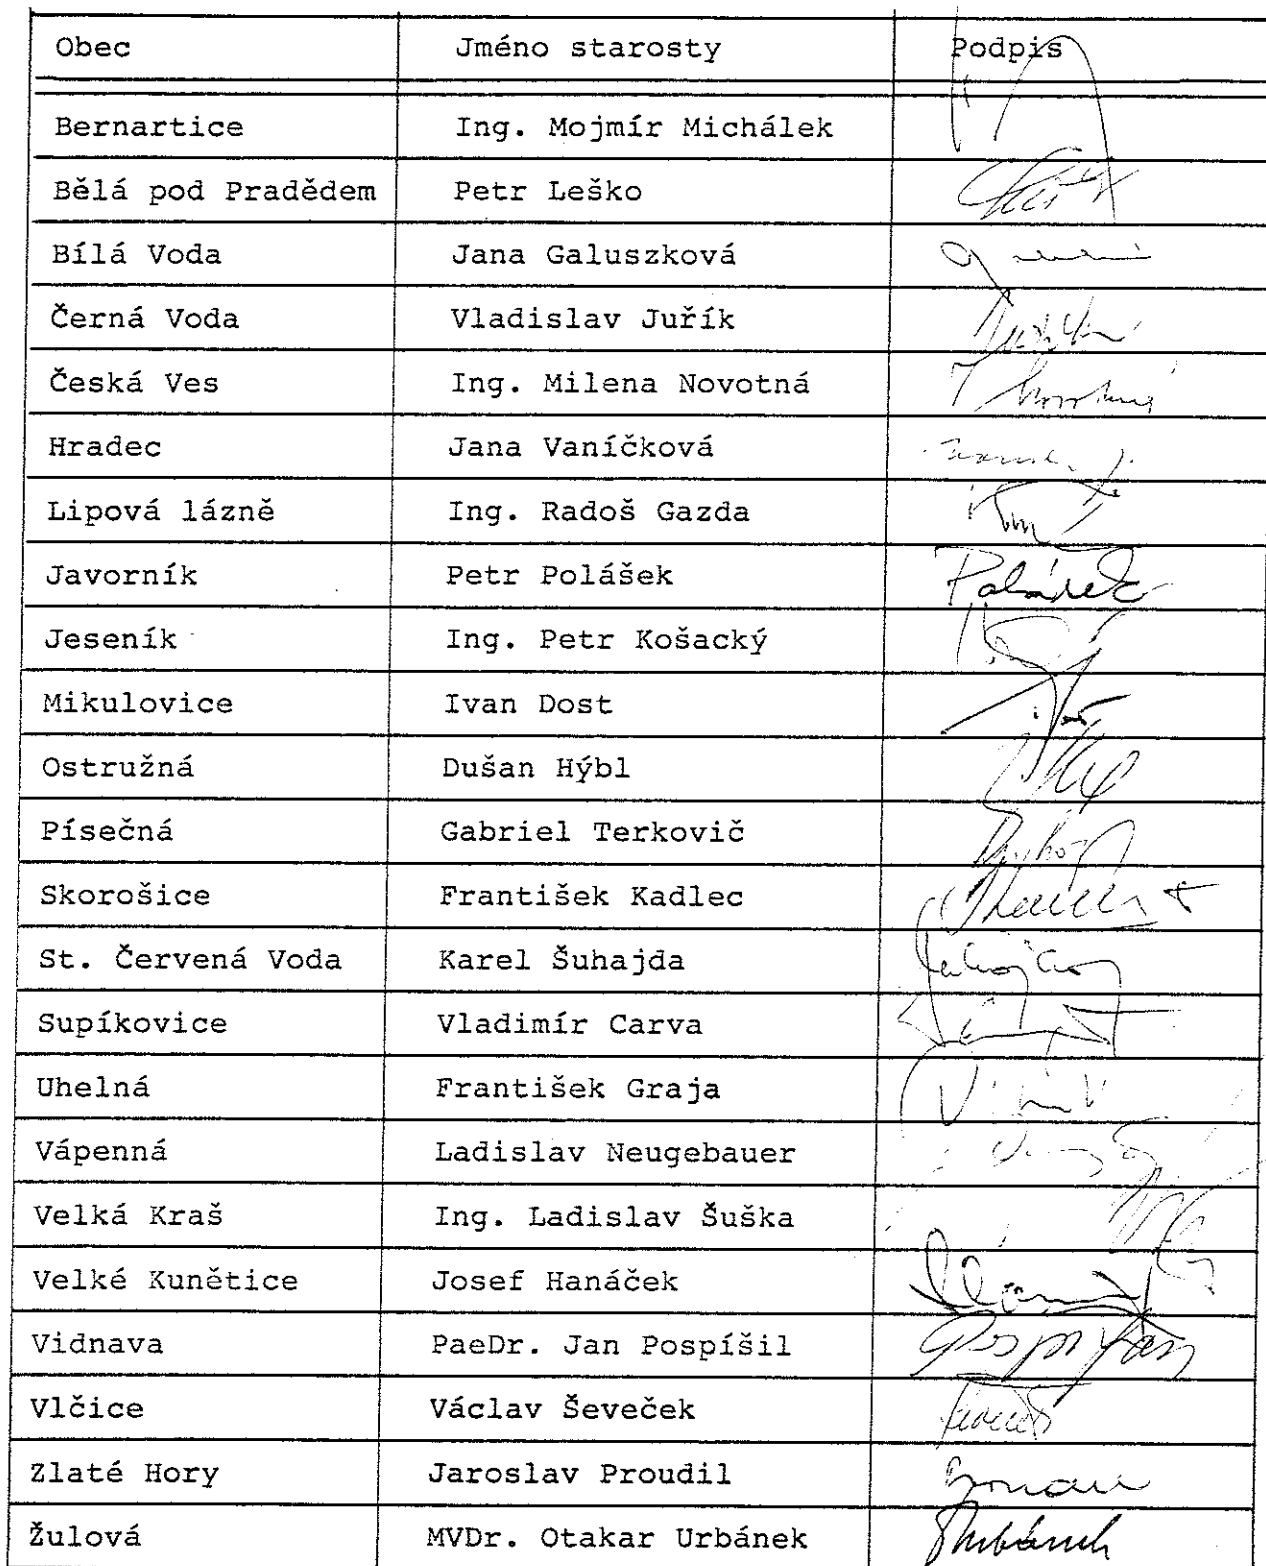 Obec Jméno starosty Podpis
Bernartice Ing. Mojmír Michálek
Bělá pod Pradědem Petr Leško
Bílá Voda Jana Galuszková
Černá Voda Vladislav Juřík
Česká Ves Ing. Milena Novotná
Hradec Jana Vaníčková
Lipová lázně Ing. Radoš Gazda
Javorník Petr Polášek
Jeseník Ing. Petr Košacký
Mikulovice Ivan Dost
Ostružná Dušan Hýbl
Písečná Gabriel Terkovič
Skorošice František Kadlec
St. Červená Voda Karel Šuhajda
Supíkovice Vladimír Carva
Uhelná František Graja
Vápenná Ladislav Neugebauer
Velká Kraš Ing. Ladislav Šuška
Velké Kunětice Josef Hanáček
Vidnava PaeDr. Jan Pospíšil
Vlčice Václav Ševeček
Zlaté Hory Jaroslav Proudil
Žulová MVDr. Otakar Urbánek